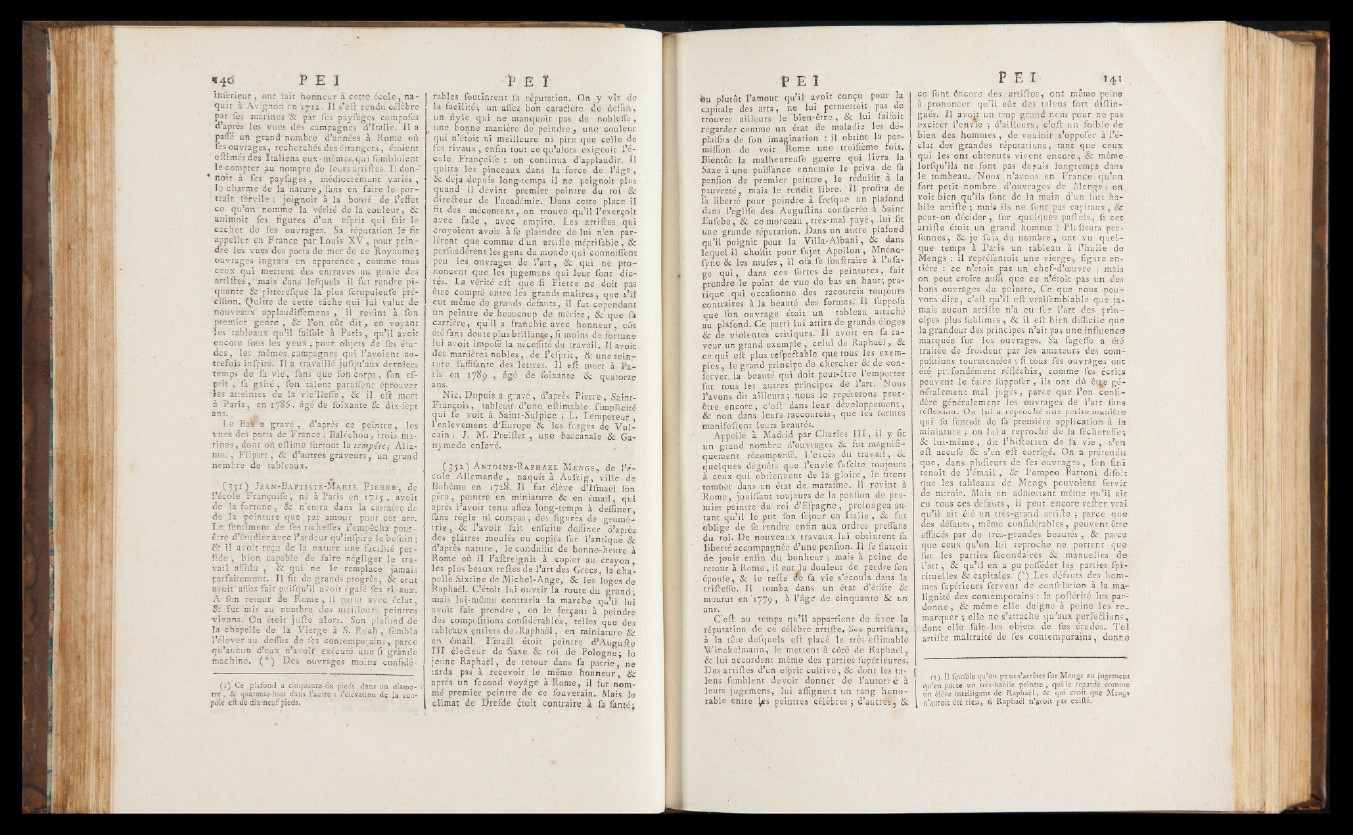 140 P E I
intérieur, ont fait honneur à cette école, na-
quit à Avignon en 1712. Il s'est rendu célèbre
par ses marines & par ses paysages composés
d'après les vues des campagnes d'Italie. Il a
passé un grand nombre d'années à Rome où
ses ouvrages, recherchés des étrangers, étoient
estimés des Italiens eux-mêmes, qui sembloient
le compter au nombre de leurs artistes. Il don-
noit à ses paysages, médiocrement variés,
le charme de la nature, sans en faire le por-
trait servile; joignoit à la bonté de l'effet
ce qu'on nomme la vérité de la couleur, &
animoit ses figures d'un esprit qui fait le
cachet de ses ouvrages. Sa réputation le fit
appeller en France par Louis XV, pour pein-
dre les vues des ports de mer de ce Royaume;
ouvrages ingrats en apparence, comme tous
ceux qui mettent des entraves au génie des
artistes, mais dans lesquels il fut rendre pi-
quante & pittoresque la plus scrupuleuse pré-
cision. Quitte de cette tâche qui lui valut de
nouveaux applaudissemens, il revint à son
premier genre, & l'on eût dit, en voyant
les tableaux qu'il faisoit à Paris, qu'il avoit
encore sous les yeux, pour objets de ses étu-
des, les mêmes campagnes qui l'avoient au-
trefois inspiré. Il a travaillé jusqu'aux derniers
temps de sa vie, sans que son corps, son es-
prit, sa gaîté, son talent parussent éprouver
les atteintes de la vieillesse, & il est mort
à Paris, en 1786. âgé de soixante & dix-sept
ans.
Le Bas a gravé, d'après ce peintre, les
vues des ports de France; Baléchou, trois ma-
rines, dont on estime surtout la tempête; Alia-
met, Flipart, & d'autres graveurs, un grand
nombre de tableaux.
(351) JEAN-BAPTISTE-MARIE PIERRE, de
l'école Françoise, né à Paris en 1715, avoit
de la fortune, & n'entra dans la carrière de
de la peinture que par amour pour cet art.
Le sentiment de ses richesses l'empêcha peut-
être d'étudier avec l'ardeur qu'inspire le besoin;
& il avoit reçu de la nature une facilité per-
fide, bien capable de faire négliger le tra-
vail assidu, & qui ne le remplace jamais
parfaitement. Il fit de grands progrès, & crut
avoir assez fait puisqu'il avoit égalé ses rivaux.
A son retour de Rome, il parut avec éclat,
& fut mis au nombre des meilleurs peintres
vivans. On étoit juste alors. Son plafond de
la chapelle de la Vierge à S. Roch, sembla
l'élever au dessus de ses contemporains, parce
qu'aucun d'eux n'avoit exécuté une si grande
machine. (*) Des ouvrages moins considé-
(1) Ce plafond a cinquante-six pieds dans un diame-
tre, & quarante-huit dans l'autre: l'élévation de la cou-
pole est de dix-neuf pieds.
P E I
rables soutinrent sa réputation. On y vit de
la facilité, un assez bon caractère de dessin,
un style qui ne manquoit pas de noblesse,
une bonne manière de peindre, une couleur
qui n'étoit ni meilleure ni pire que celle de
ses rivaux, enfin tout ce qu'alors exigeoit l'é-
cole Françoise: on continua d'applaudir. Il
quitta les pinceaux dans la force de l'âge,
& déja depuis long-temps il ne peignoit plus
quand il devint premier peintre du roi &
directeur de l'académie. Dans cette place il
fit des mécontens, on trouva qu'il l'exerçoit
avec faste, avec empire. Les artistes qui
croyoient avoir à se plaindre de lui n'en par-
lèrent que comme d'un artiste méprisable, &
persuadèrent les gens du monde qui connoissent
peu les ouvrages de l'art, & qui ne pro-
noncent que les jugemens qui leur sont dic-
tés. La vérité est que si Pierre ne doit pas
être compté entre les grands maîtres, que s'il
eut même de grands défauts, il fut cependant
un peintre de beaucoup de mérite, & que sa
carrière, qu'il a franchie avec honneur, eût
été sans doute plus brillante, si moins de fortune
lui avoit imposé la nécessité du travail. Il avoit
des manières nobles, de l'esprit, & une tein-
ture suffisante des lettres. Il est mort à Pa-
ris en 1789, âgé de soixante & quatorze
ans.
Nic. Dupuis a gravé, d'après Pierre, Saint-
François, tableur d'une estimable simplicité
qui se voit à Saint-Sulpice; L. Lempereur,
l'enlevement d'Europe & les forges de Vul-
cain; J. M. Preisler, une baccanale & Ga-
nymede enlevé.
(352) ANTOINE-RAPHAEL MENGS, de l'é-
cole Allemande, naquit à Aussig, ville de
Bohême en 1728. Il fut élève d'Ismael son
père, peintre en miniature & en émail, qui
après l'avoir tenu assez long-temps à dessiner,
sans règle ni compas, des figures de géomé-
trie, & l'avoir fait ensuite dessiner d'après
des plâtres moulés ou copiés sur l'antique &
d'après nature, le conduisit de bonne-heure à
Rome où il l'astreignit à copier au crayon,
les plus beaux restes de l'art des Grecs, la cha-
pelle Sixtine de Michel-Ange, & les loges de
Raphaël. C'étoit lui ouvrir la route du grand;
mais lui-même contraria la marche qu'il lui
avoit fait prendre, en le forçant à peindre
des compositions considérables, telles que des
tableaux entiers de Raphaël, en miniature &
en émail. Ismaël étoit peintre d'Auguste
III électeur de Saxe & roi de Pologne; le
jeune Raphaël, de retour dans sa patrie, ne
tarda pas à recevoir le même honneur, &
après un second voyage à Rome, il fut nom-
mé premier peintre de ce souverain. Mais le
climat de Dresde étoit contraire à sa santé;
P E I
ou plutôt l'amour qu'il avoit conçu pour la
capitale des arts, ne lui permettoit pas de
trouver ailleurs le bien-être, & lui faisoit
regarder comme un état de maladie les dé-
plaisirs de son imagination: il obtint la per-
mission de voir Rome une troisième fois.
Bientôt la malheureuse guerre qui livra la
Saxe à une puissance ennemie le priva de sa
pension de premier peintre, le réduisit à la
pauvreté, mais le rendit libre. Il profita de
sa liberté pour peindre à fresque un plafond
dans l'église des Augustins consacrée à Saint
Eusebe, & ce morceau, très-mal payé, lui fit
une grande réputation. Dans un autre plafond
qu'il peignit pour la Villa-Albani, & dans
lequel il choisit pour sujet Apollon, Mnémo-
syne & les muses, il osa se soustraire à l'usa-
ge qui, dans ces sortes de peintures, fait
prendre le point de vue de bas en haut; pra-
tique qui occasionne des racourcis toujours
contraires à la beauté des formes. Il supposa
que son ouvrage étoit un tableau attaché
au plafond. Ce parti lui attira de grands éloges
& de violentes critiques. Il avoit en sa fa-
veur un grand exemple, celui de Raphaël, &
ce qui est plus respectable que tous les exem-
ples, le grand principe de chercher & de con-
server, la beauté qui doit peut-être l'emporter
sur tous les autres principes de l'art. Nous
l'avons dit ailleurs; nous le répéterons peut-
être encore, c'est dans leur développement,
& non dans leurs raccourcis, que les formes
manifestent leurs beautés.
Appellé à Madrid par Charles III, il y fit
un grand nombre d'ouvrages & fut magnifi-
quement récompensé. L'excès du travail, &
quelques dégoûts que l'envie suscite toujours
à ceux qui obtiennent de la gloire, le firent
tomber dans un état de marasme. Il revint à
Rome, jouissant toujours de la pension de pre-
mier peintre du roi d'Espagne, prolongea au-
tant qu'il le put son séjour en Italie, & fut
obligé de se rendre enfin aux ordres pressans
du roi. De nouveaux travaux lui obtinrent sa
liberté accompagnée d'une pension. Il se flattoit
de jouir enfin du bonheur; mais à peine de
retour à Rome, il eut la douleur de perdre son
épouse, & le reste de sa vie s'écoula dans la
tristesse. Il tomba dans un état d'étisie &
mourut en 1779, à l'âge de cinquante & un
ans.
C'est au temps qu'il appartient de fixer la
réputation de ce célèbre artiste. Ses partisans,
à la tête desquels est placé le très-estimable
Winckelmann, le mettent à côté de Raphaël,
& lui accordent même des parties supérieures.
Des artistes d'un esprit cultivé, & dont les ta-
lens semblent devoir donner de l'autorité à
leurs jugemens, lui assignent un rang hono-
rable entre les peintres célèbres; d'autres, &
P E I 141
ce sont encore des artistes, ont même peine
à prononcer qu'il eût des talens fort distin-
gués. Il avoit un trop grand nom pour ne pas
exciter l'envie; d'ailleurs, c'est un foible de
bien des hommes, de vouloir s'opposer à l'é-
clat des grandes réputations, tant que ceux
qui les ont obtenues vivent encore, & même
lorsqu'ils ne sont pas depuis longtemps dans
le tombeau. Nous n'avons en France qu'un
fort petit nombre d'ouvrages de Mengs; on
voit bien qu'ils sont de la main d'un fort ha-
bile artiste; mais ils ne sont pas capitaux, &
peut-on décider, sur quelques pastels, si cet
artiste étoit un grand homme? Plusieurs per-
sonnes, & je suis du nombre, ont vu quel-
que temps à Paris un tableau à l'huile de
Mengs: il représentoit une vierge, figure en-
tière: ce n'étoit pas un chef-d'œuvre: mais
on peut croire aussi que ce n'étoit pas un des
bons ouvrages du peintre. Ce que nous pou-
vons dire, c'est qu'il est vraisemblable que ja-
mais aucun artiste n'a eu sur l'art des prin-
cipes plus sublimes, & il est bien difficile que
la grandeur des principes n'ait pas une influence
marquée sur les ouvrages. Sa sagesse a été
traitée de froideur par les amateurs des com-
positions tourmentées; si tous ses ouvrages ont
été profondément réfléchis, comme ses écrits
peuvent le faire supposer, ils ont dû être gé-
néralement mal jugés, parce que l'on consi-
dère généralement les ouvrages de l'art sans
réflexion. On lui a reproché une petite manière
qui se sentoit de sa première application à la
miniature; on lui a reproché de la sécheresse;
& lui-même, dit l'historien de sa vie, s'en
est accusé & s'en est corrigé. On a prétendu
que, dans plusieurs de ses ouvrages, son fini
tenoit de l'émail, & Pompeo Battoni disoit
que les tableaux de Mengs pouvoient servir
de miroir. Mais en admettant même qu'il ait
eu tous ces défauts, il peut encore rester vrai
qu'il ait été un très-grand artiste; parce que
des défauts, même considérables, peuvent être
effacés par de très-grandes beautés, & parce
que ceux qu'on lui reproche ne portent que
sur les parties secondaires & manuelles de
l'art, & qu'il en a pu posséder les parties spi-
rituelles & capitales. (1) Les défauts des hom-
mes supérieurs servent de consolation à la ma-
lignité des contemporains: la postérité les par-
donne, & même elle daigne à peine les re-
marquer; elle ne s'attache qu'aux perfections,
dont elle fait les objets de ses études. Tel
artiste maltraité de ses contemporains, donne
(1) Il semble qu'on peut s'arrêter sur Mengs au jugement
qu'en porte un très-habile peintre, qui le regarde comme
un élève intelligent de Raphaël, & qui croit que Mengs
n'auroit été rien, si Raphaël n'avoit pas existé.